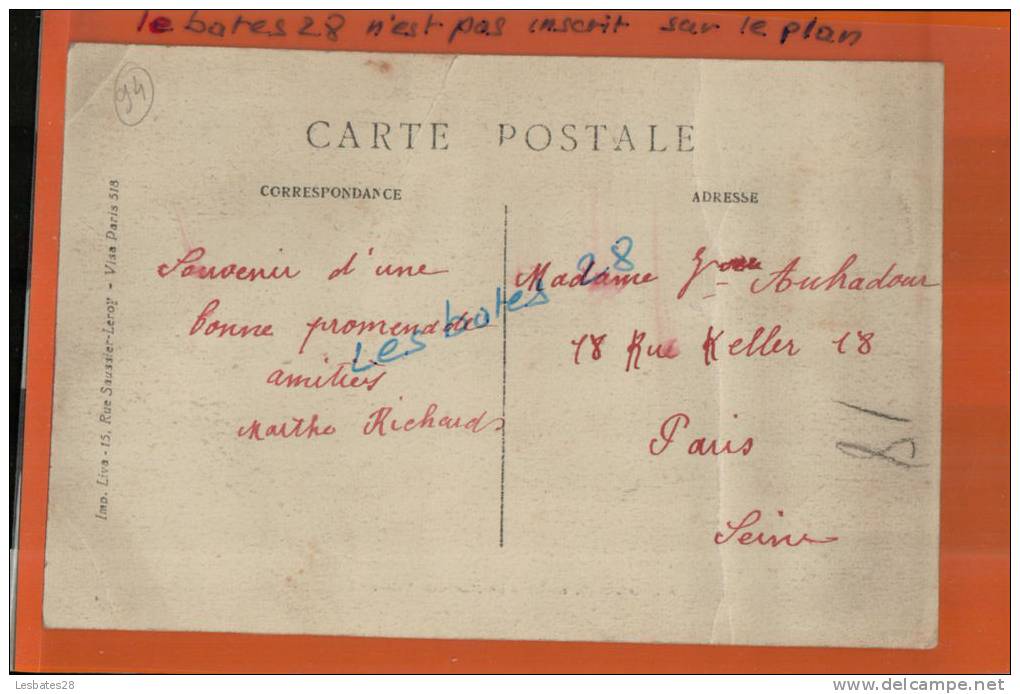 le bates 28 n'est pas inscrit sur le plan
94
CARTE POSTALE
CORRESPONDANCE
ADRESSE
Imp. Liva - 15, Rue Saussier-Leroy - Visa Paris 518
Souvenir d'une
bonne promenade
amitiés
Marthe Richard
Les bates 28
Madame
18 Rue Keller 18
Paris
Seine
81
Lesbates28
www.delcampe.net